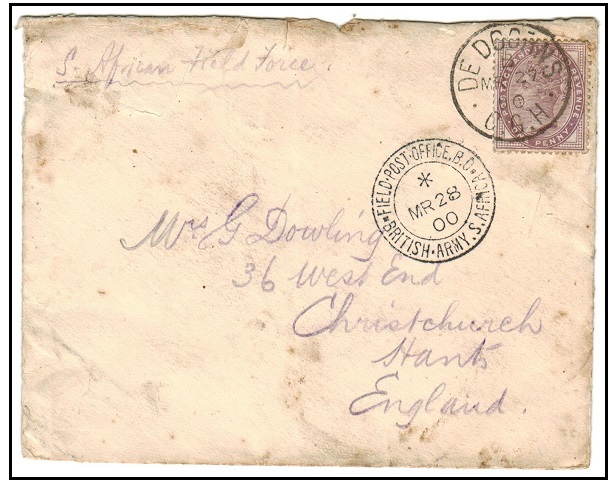 S. African Field Force.
DE DOORNS
MR 27
00
C.G.H.
POSTAGE & INLAND REVENUE
ONE PENNY
FIELD·POST·OFFICE.B.O.
*
MR 28
00
BRITISH·ARMY.S.AFRICA
Mrs G Dowling
36 West End
Christchurch
Hants
England.